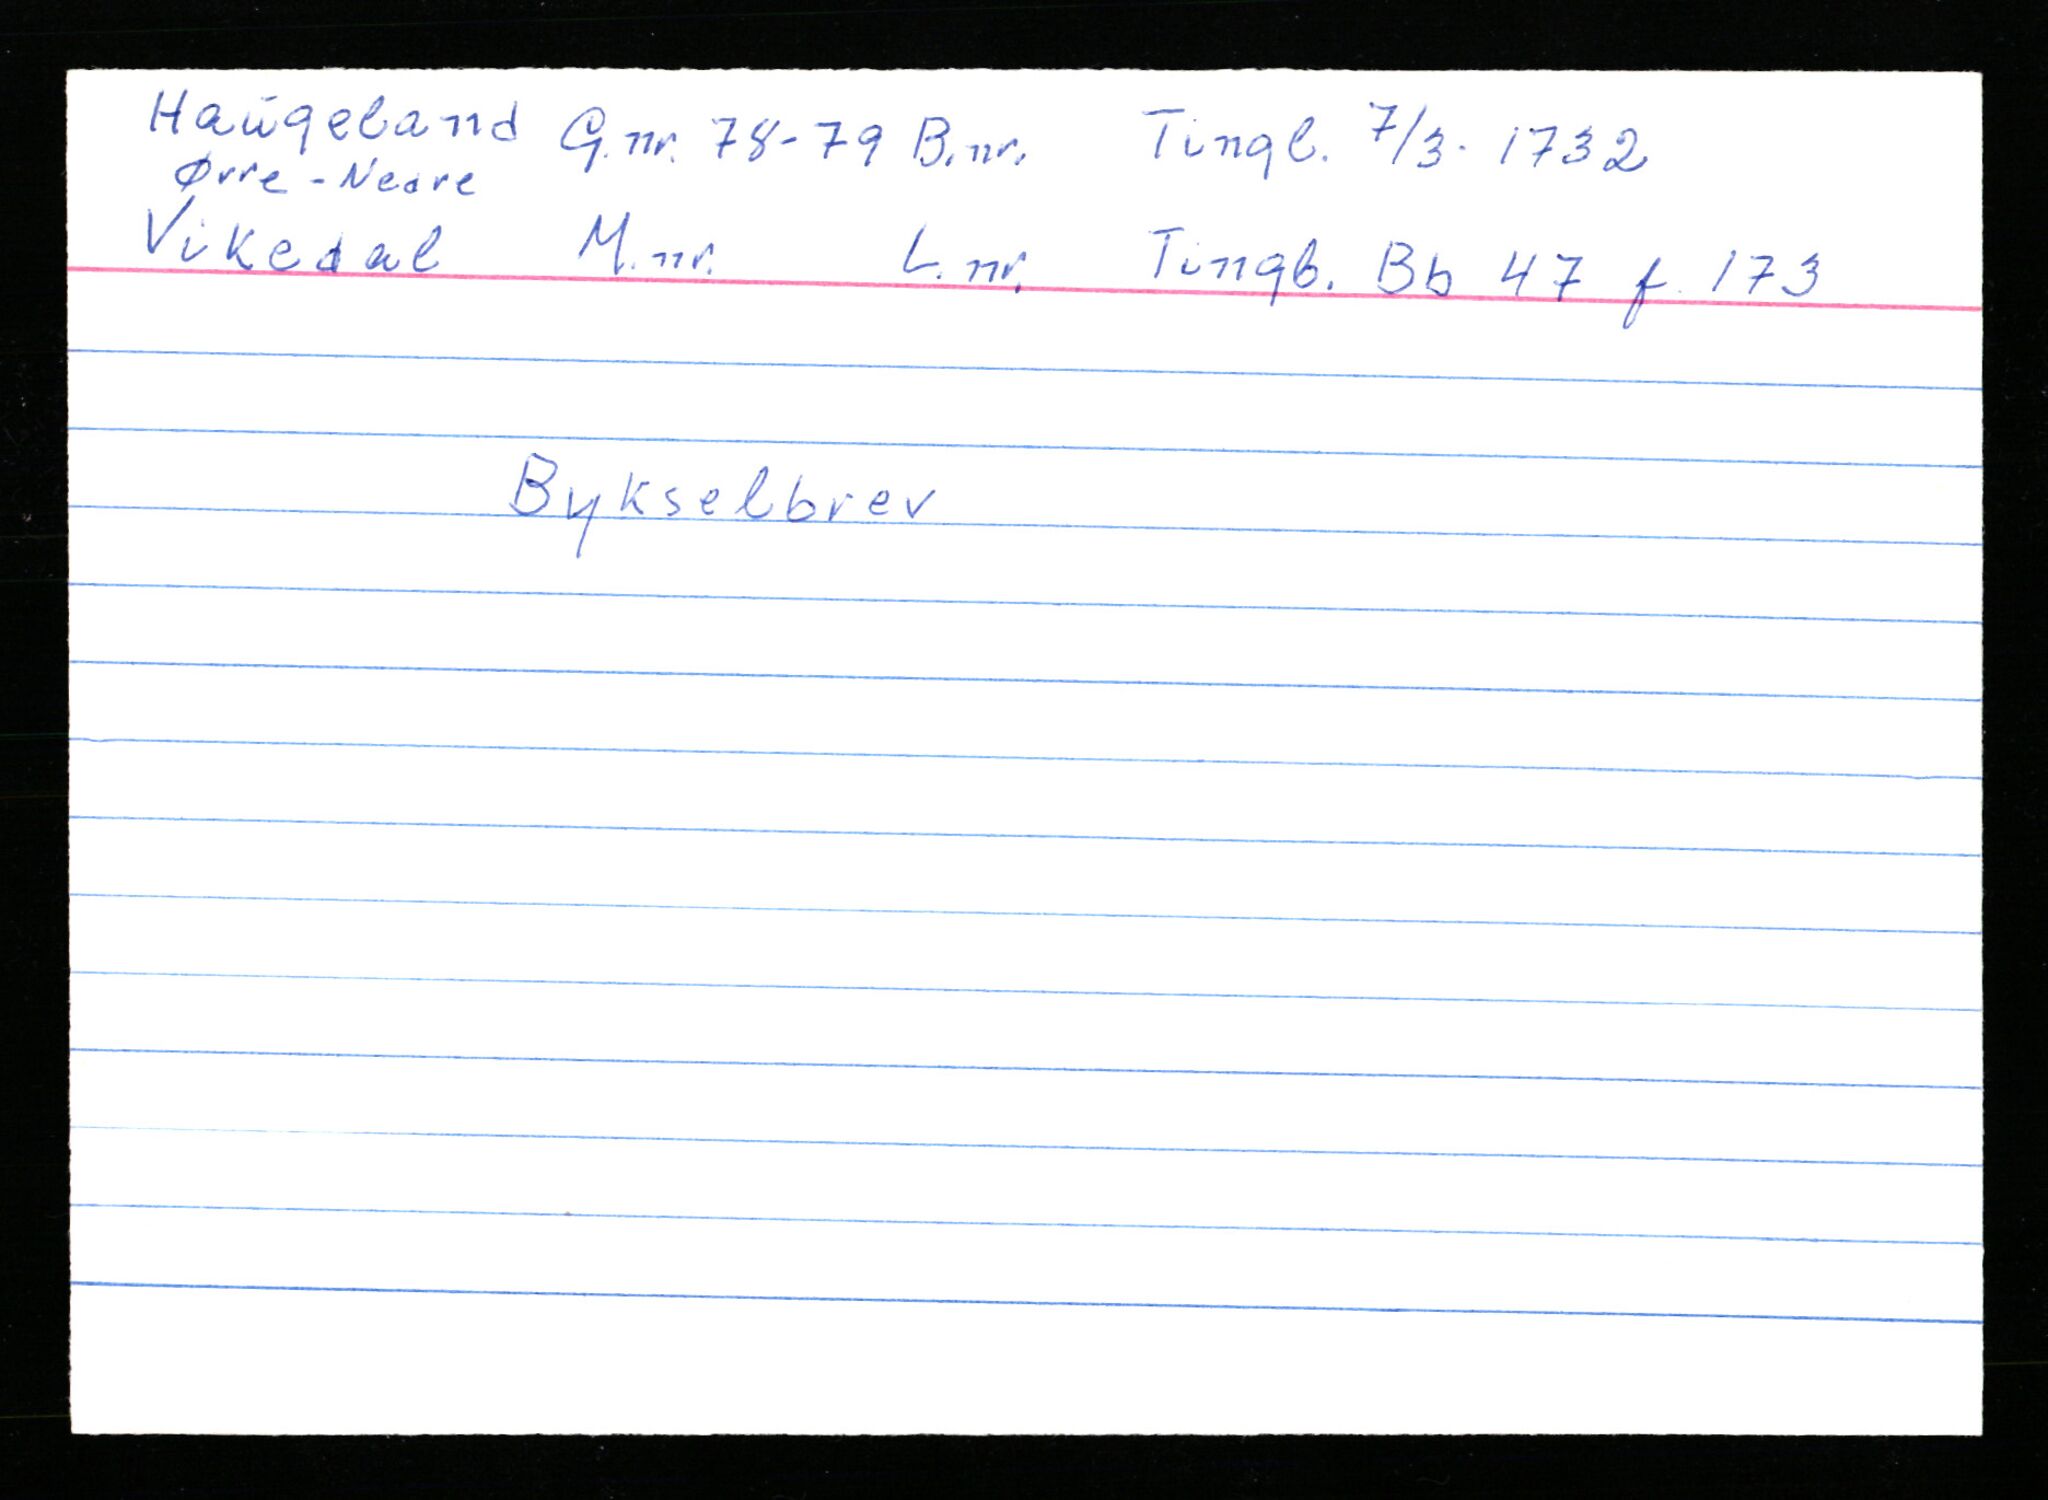 Haugeland G.nr. 78-79 B.nr. Tingl. 7/3. 1732
Ørre - Nedre
Vikedal M.nr. L.nr. Tingb. Bb 47 f. 173
Bykselbrev